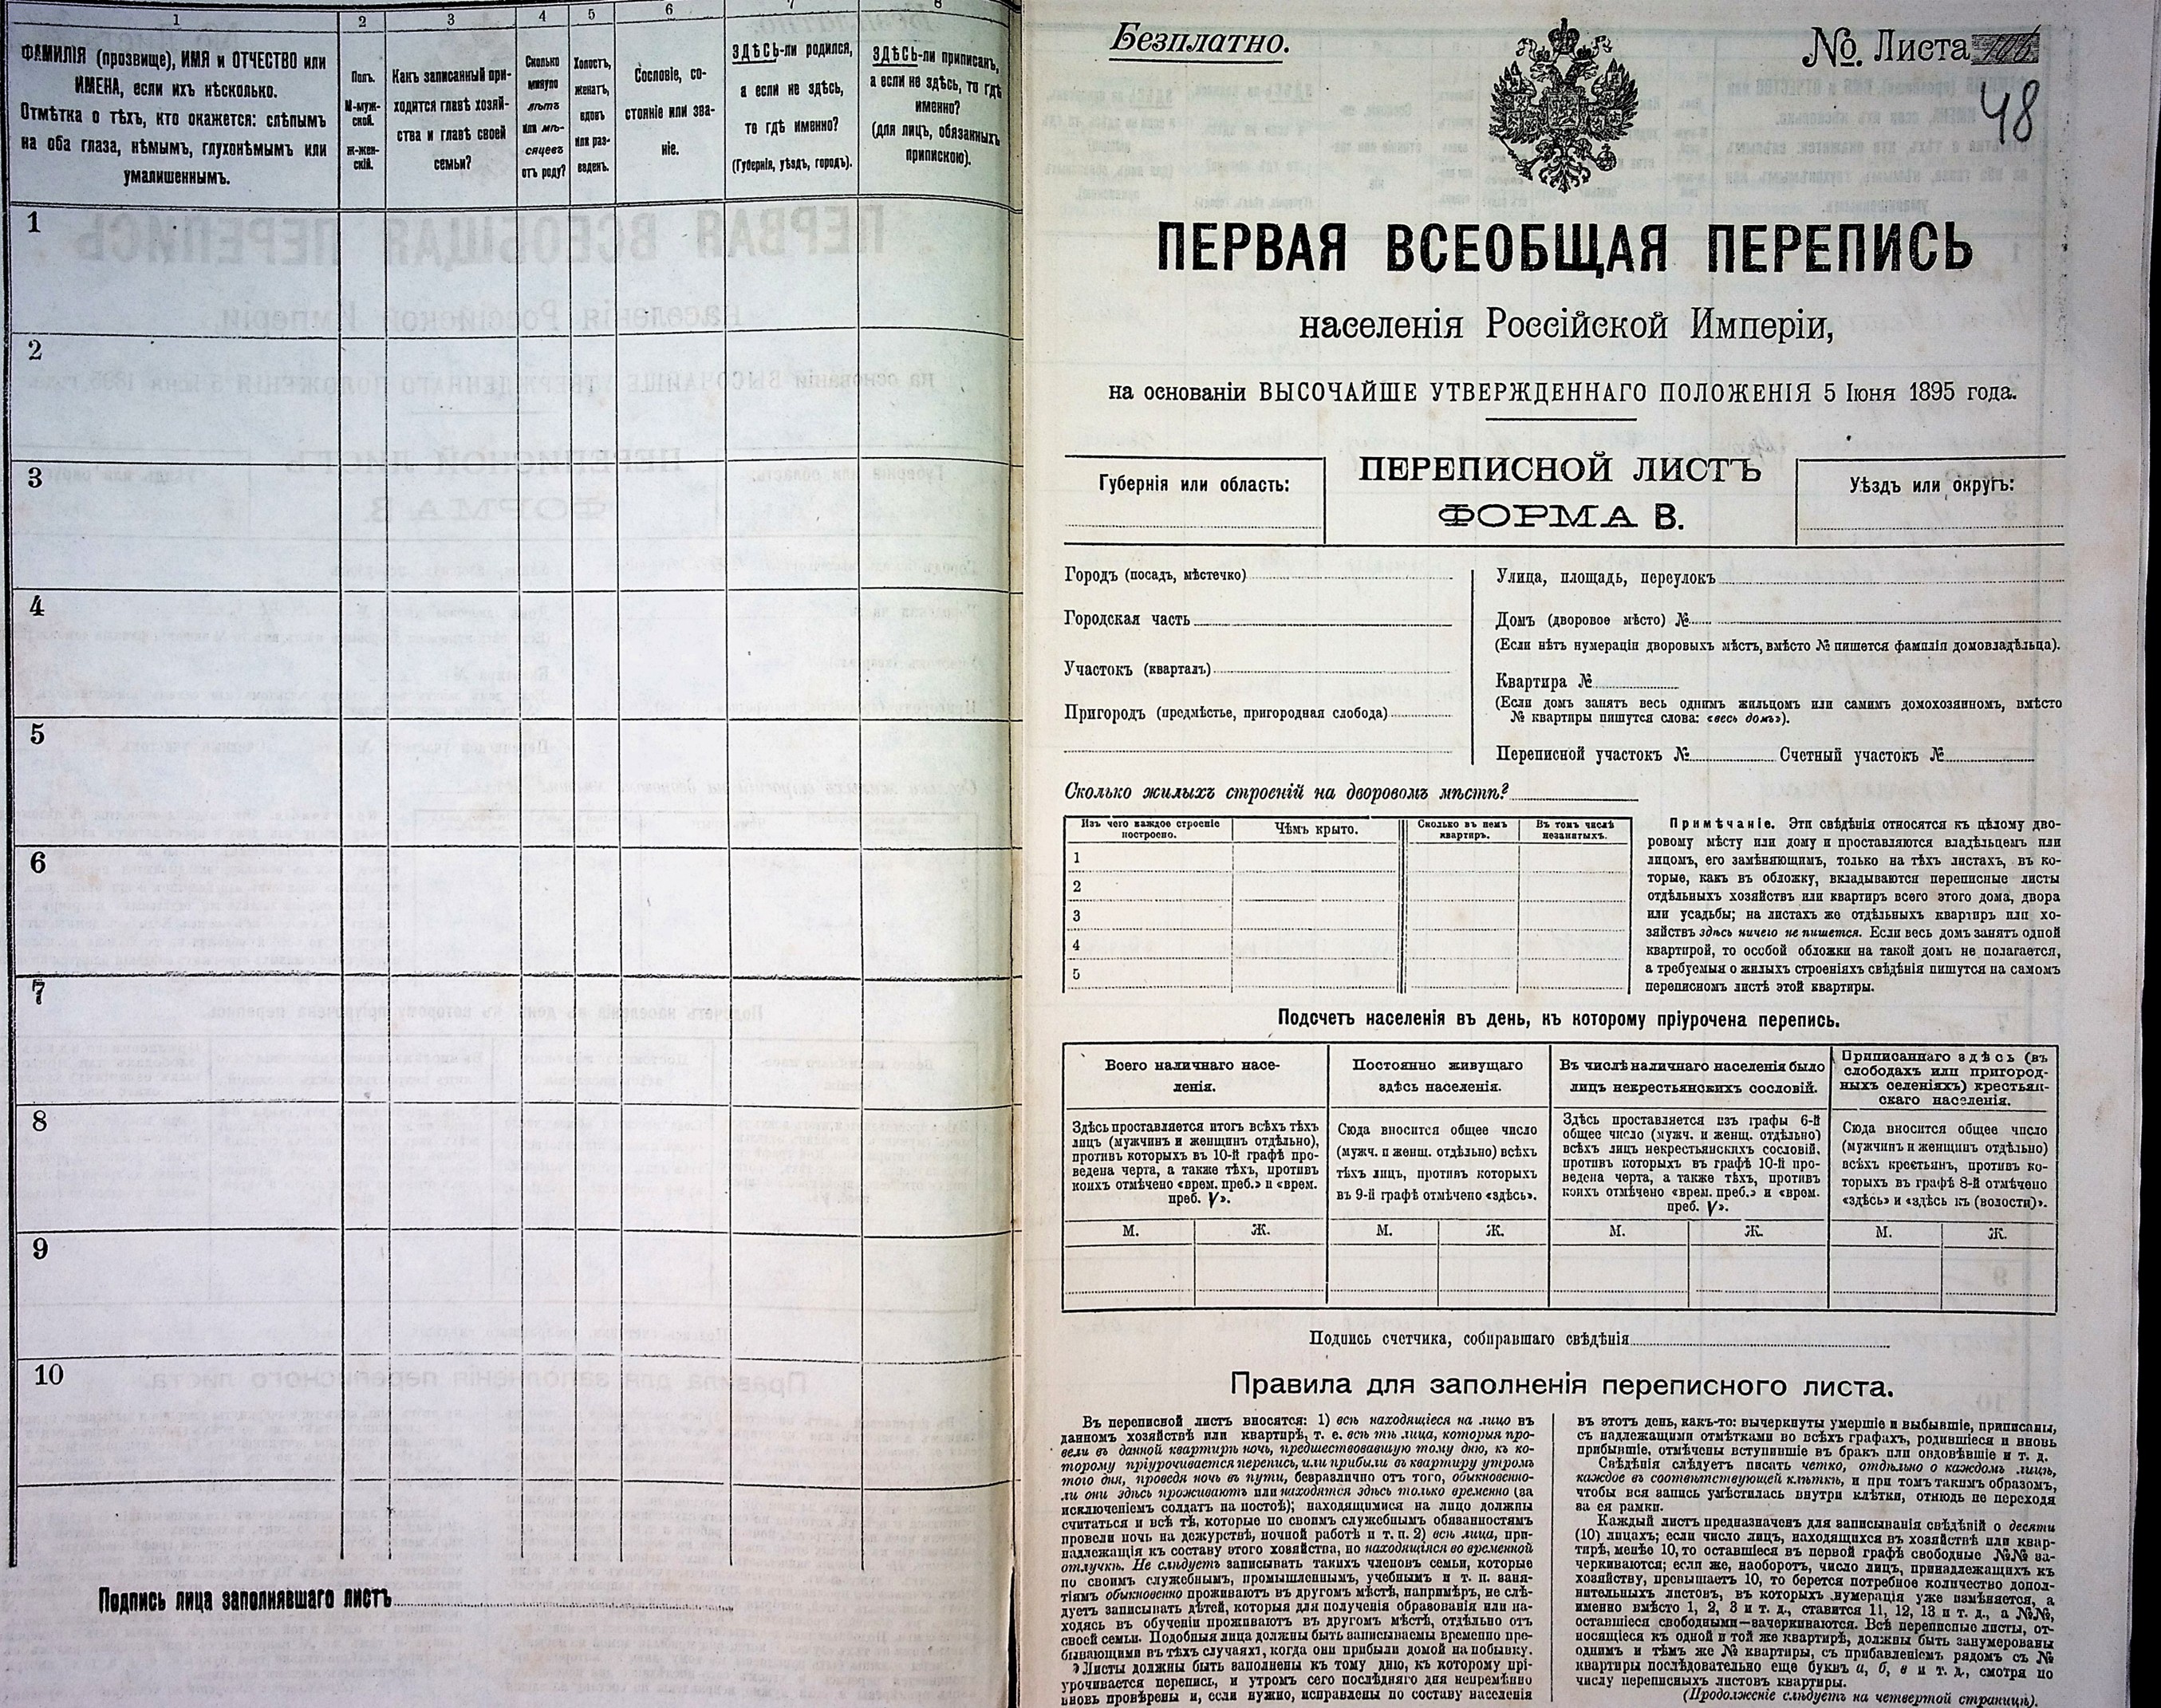 1
2
3
4
5
6
7
8
ФАМИЛІЯ (прозвище), ИМЯ и ОТЧЕСТВО или
ИМЕНА, если ихъ нѣсколько.
Отмѣтка о тѣхъ, кто окажется: слѣпымъ
на оба глаза, нѣмымъ, глухонѣмымъ или
умалишеннымъ.
Полъ.
М-муж-
ской.
Ж-жен-
скій.
Какъ записанный при-
ходится главѣ хозяй-
ства и главѣ своей
семьи?
Сколько
минуло
лѣтъ
или мѣ-
сяцевъ
отъ роду?
Холостъ,
женатъ,
вдовъ
или раз-
веденъ.
Сословіе, со-
стояніе или зва-
ніе.
ЗДѢСЬ-ли родился,
а если не здѣсь,
то гдѣ именно?
(Губернія, уѣздъ, городъ).
ЗДѢСЬ-ли приписанъ,
а если не здѣсь, то гдѣ
именно?
(для лицъ, обязанныхъ
припискою).
1
2
3
4
5
6
7
8
9
10
Подпись лица заполнявшаго листъ
Безплатно.
№. Листа
48
ПЕРВАЯ ВСЕОБЩАЯ ПЕРЕПИСЬ
населенія Россійской Имперіи,
на основаніи ВЫСОЧАЙШЕ УТВЕРЖДЕННАГО ПОЛОЖЕНІЯ 5 Іюня 1895 года.
Губернія или область:
ПЕРЕПИСНОЙ ЛИСТЪ
ФОРМА В.
Уѣздъ или округъ:
Городъ (посадъ, мѣстечко)
Городская часть
Участокъ (кварталъ)
Пригородъ (предмѣстье, пригородная слобода)
Улица, площадь, переулокъ
Домъ (дворовое мѣсто) №
(Если нѣтъ нумераціи дворовыхъ мѣстъ, вмѣсто № пишется фамилія домовладѣльца).
Квартира №
(Если домъ занятъ весь однимъ жильцомъ или самимъ домохозяиномъ, вмѣсто
№ квартиры пишутся слова: «весь домъ»).
Переписной участокъ № Счетный участокъ №
Сколько жилыхъ строеній на дворовомъ мѣстѣ?
Изъ чего каждое строеніе
построено.
Чѣмъ крыто.
Сколько въ немъ
квартиръ.
Въ томъ числѣ
незанятыхъ.
1
2
3
4
5
Примѣчаніе. Эти свѣдѣнія относятся къ цѣлому дво-
ровому мѣсту или дому и проставляются владѣльцемъ или
лицомъ, его замѣняющимъ, только на тѣхъ листахъ, въ ко-
торые, какъ въ обложку, вкладываются переписные листы
отдѣльныхъ хозяйствъ или квартиръ всего этого дома, двора
или усадьбы; на листахъ же отдѣльныхъ квартиръ или хо-
зяйствъ здѣсь ничего не пишется. Если весь домъ занятъ одной
квартирой, то особой обложки на такой домъ не полагается,
а требуемыя о жилыхъ строеніяхъ свѣдѣнія пишутся на самомъ
переписномъ листѣ этой квартиры.
Подсчетъ населенія въ день, къ которому пріурочена перепись.
Всего наличнаго насе-
ленія.
Постоянно живущаго
здѣсь населенія.
Въ числѣ наличнаго населенія было
лицъ некрестьянскихъ сословій.
Приписаннаго здѣсь (въ
слободахъ или пригород-
ныхъ селеніяхъ) крестьян-
скаго населенія.
Здѣсь проставляется итогъ всѣхъ тѣхъ
лицъ (мужчинъ и женщинъ отдѣльно),
противъ которыхъ въ 10-й графѣ про-
ведена черта, а также тѣхъ, противъ
коихъ отмѣчено «врем. преб.» и «врем.
преб. V».
Сюда вносится общее число
(мужч. и женщ. отдѣльно) всѣхъ
тѣхъ лицъ, противъ которыхъ
въ 9-й графѣ отмѣчено «здѣсь».
Здѣсь проставляется изъ графы 6-й
общее число (мужч. и женщ. отдѣльно)
всѣхъ лицъ некрестьянскихъ сословій,
противъ которыхъ въ графѣ 10-й про-
ведена черта, а также тѣхъ, противъ
коихъ отмѣчено «врем. преб.» и «врем.
преб. V».
Сюда вносится общее число
(мужчинъ и женщинъ отдѣльно)
всѣхъ крестьянъ, противъ ко-
торыхъ въ графѣ 8-й отмѣчено
«здѣсь» и «здѣсь къ (волости)».
М. Ж. М. Ж. М. Ж. М. Ж.
Подпись счетчика, собиравшаго свѣдѣнія
Правила для заполненія переписного листа.
Въ переписной листъ вносятся: 1) всѣ находящіеся на лицо въ
данномъ хозяйствѣ или квартирѣ, т. е. всѣ тѣ лица, которыя про-
вели въ данной квартирѣ ночь, предшествовавшую тому дню, къ ко-
торому пріурочивается перепись, или прибыли въ квартиру утромъ
того дня, проведя ночь въ пути, безразлично отъ того, обыкновенно-
ли они здѣсь проживаютъ или находятся здѣсь только временно (за
исключеніемъ солдатъ на постоѣ); находящимися на лицо должны
считаться и всѣ тѣ, которые по своимъ служебнымъ обязанностямъ
провели ночь на дежурствѣ, ночной работѣ и т. п. 2) всѣ лица, при-
надлежащія къ составу этого хозяйства, но находящіяся во временной
отлучкѣ. Не слѣдуетъ записывать такихъ членовъ семьи, которые
по своимъ служебнымъ, промышленнымъ, учебнымъ и т. п. заня-
тіямъ обыкновенно проживаютъ въ другомъ мѣстѣ, напримѣръ, не слѣ-
дуетъ записывать дѣтей, которыя для полученія образованія или на-
ходясь въ обученіи проживаютъ въ другомъ мѣстѣ, отдѣльно отъ
своей семьи. Подобныя лица должны быть записываемы временно пре-
бывающими въ тѣхъ случаяхъ, когда они прибыли домой на побывку.
Листы должны быть заполнены къ тому дню, къ которому прі-
урочивается перепись, и утромъ сего послѣдняго дня непремѣнно
вновь провѣрены и, если нужно, исправлены по составу населенія
въ этотъ день, какъ-то: вычеркнуты умершіе и выбывшіе, приписаны,
съ надлежащими отмѣтками во всѣхъ графахъ, родившіеся и вновь
прибывшіе, отмѣчены вступившіе въ бракъ или овдовѣвшіе и т. д.
Свѣдѣнія слѣдуетъ писать четко, отдѣльно о каждомъ лицѣ,
каждое въ соотвѣтствующей клѣткѣ, и при томъ такимъ образомъ,
чтобы вся запись умѣстилась внутри клѣтки, отнюдь не переходя
за ея рамки.
Каждый листъ предназначенъ для записыванія свѣдѣній о десяти
(10) лицахъ; если число лицъ, находящихся въ хозяйствѣ или квар-
тирѣ, менѣе 10, то оставшіеся въ первой графѣ свободные №№ за-
черкиваются; если же, наоборотъ, число лицъ, принадлежащихъ къ
хозяйству, превышаетъ 10, то берется потребное количество допол-
нительныхъ листовъ, въ которыхъ нумерація уже измѣняется, а
именно вмѣсто 1, 2, 3 и т. д., ставится 11, 12, 13 и т. д., а №№,
оставшіеся свободными—зачеркиваются. Всѣ переписные листы, от-
носящіеся къ одной и той же квартирѣ, должны быть занумерованы
однимъ и тѣмъ же № квартиры, съ прибавленіемъ рядомъ съ №
квартиры послѣдовательно еще буквъ а, б, в и т. д., смотря по
числу переписныхъ листовъ квартиры.
(Продолженіе слѣдуетъ на четвертой страницѣ).